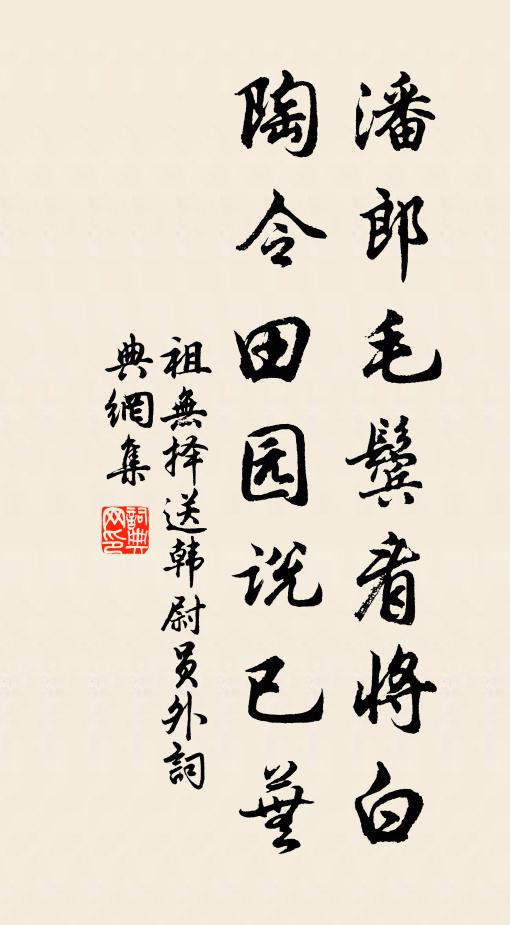 潘郎毛鬓看将白
陶令田园说已芜
祖無择送韩尉员外詞
典網集
詞典
网印